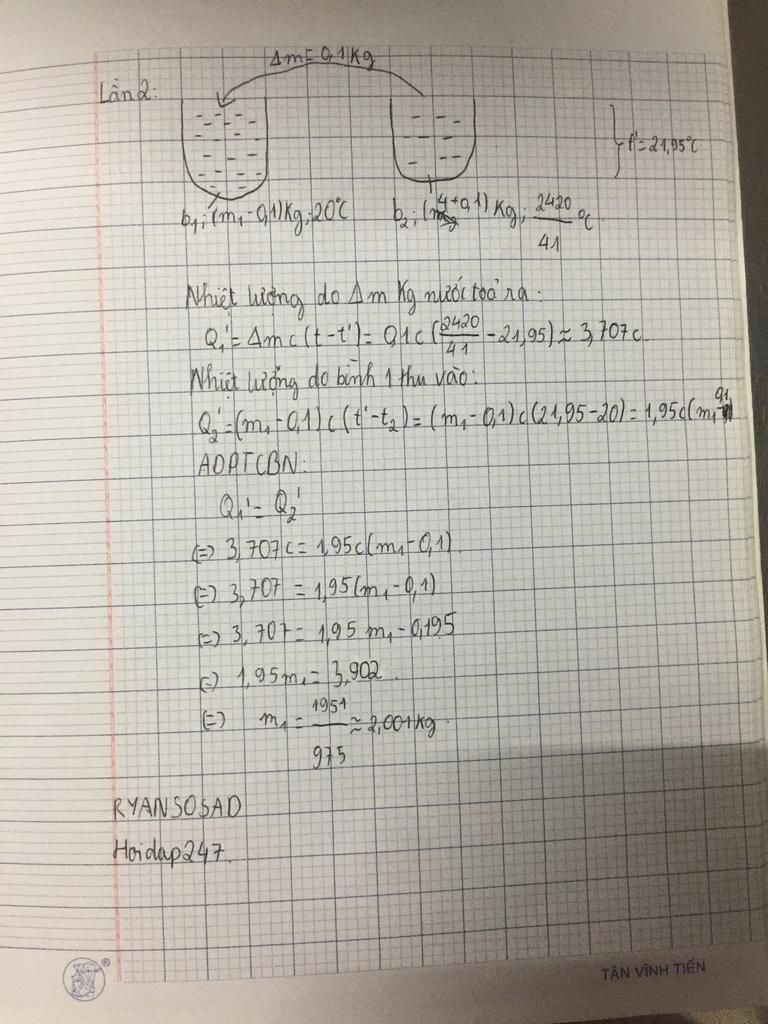 Δm=0,1Kg
Lần 2:
t'=21,95°C
b₁; (m₁-0,1)Kg; 20°C
b₂; (4+0,1) Kg; 2420/41 °C
Nhiệt lượng do Δm Kg nước toả ra:
Q₁'=Δmc(t-t')= 0,1c(2420/41-21,95)≈3,707c
Nhiệt lượng do bình 1 thu vào:
Q₂'=(m₁-0,1)c(t'-t₂)=(m₁-0,1)c(21,95-20)=1,95c(m₁-0,1)
ADPTCBN:
Q₁'=Q₂'
(=) 3,707c=1,95c(m₁-0,1)
(=) 3,707 = 1,95(m₁-0,1)
(=) 3,707= 1,95 m₁-0,195
(=) 1,95m₁= 3,902
(=) m₁= 1951/975 ≈2,001Kg
RYANSOSAD
Hoidap247.
TÂN VĨNH TIẾN